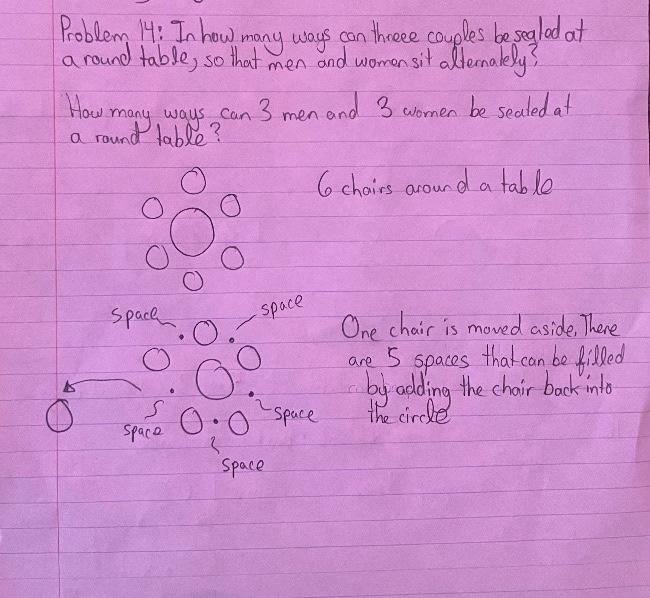 Problem 14: In how many ways can threee couples be seated at
a round table, so that men and women sit alternately?
How many ways can 3 men and 3 women be seated at
a round table?
6 chairs around a table
space
space
One chair is moved aside. There
are 5 spaces that can be filled
by adding the chair back into
the circle
space
space
space